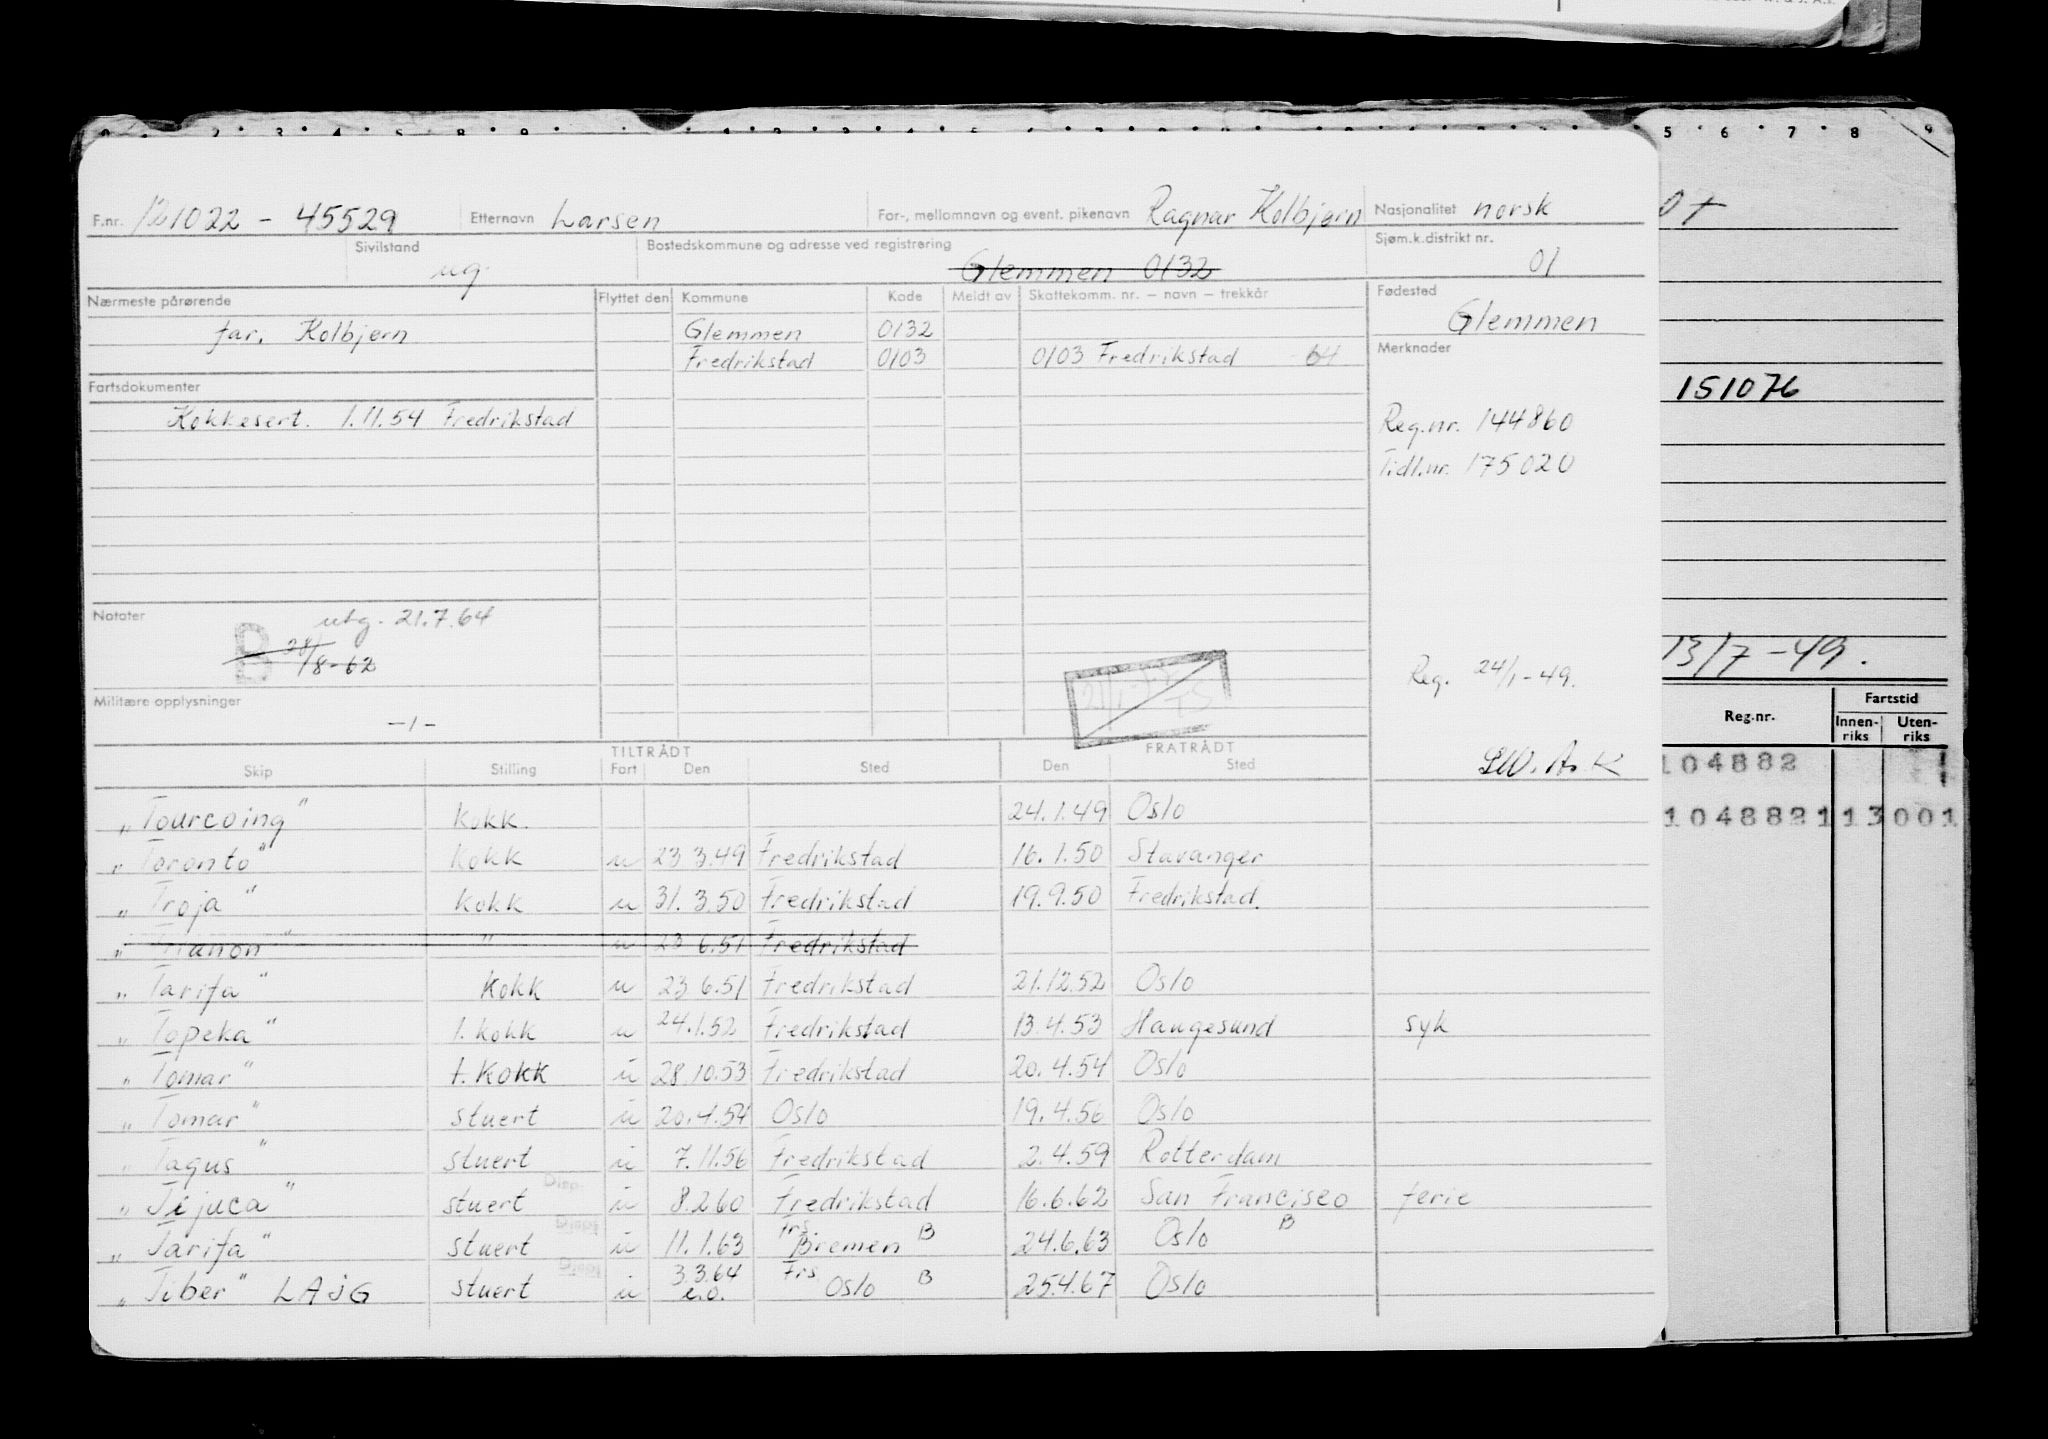 F.nr. 121022 - 45529 Etternavn Larsen For-, mellomnavn og event. pikenavn Ragnar Kolbjørn Nasjonalitet norsk
Sivilstand ug. Bostedskommune og adresse ved registrering Glemmen 0132 Sjøm.k.distrikt nr. 01
Nærmeste pårørende Flyttet den Kommune Kode Meldt av Skattekomm. nr. – navn – trekkår Fødested
far. Kolbjørn Glemmen 0132 Glemmen
Fredrikstad 0103 0103 Fredrikstad - 64 Merknader
Fartsdokumenter 151076
Kokkesert. 1.11.54 Fredrikstad Reg.nr. 144860
Tidl.nr. 175020
Notater utg. 21.7.64
B 28/8-62 13/7-49.
Reg. 24/1-49.
Militære opplysninger
-/-
Reg.nr. Fartstid
Innenriks Utenriks
TILTRÅDT FRATRÅDT
Skip Stilling Fart Den Sted Den Sted
104882
„Tourcoing" Kokk. 24.1.49 Oslo
104882113001
„Toronto" Kokk u 23.3.49 Fredrikstad 16.1.50 Stavanger
„Troja" Kokk u 31.3.50 Fredrikstad 19.9.50 Fredrikstad.
„Trianon" " u 23.6.51 Fredrikstad
„Tarifa" Kokk u 23.6.51 Fredrikstad 21.12.52 Oslo
„Topeka" 1. kokk u 24.1.52 Fredrikstad 13.4.53 Haugesund syk
„Tomar" 1. Kokk u 28.10.53 Fredrikstad 20.4.54 Oslo
„Tomar" stuert u 20.4.54 Oslo 19.4.56 Oslo
„Tagus" stuert u 7.11.56 Fredrikstad 2.4.59 Rotterdam
„Tijuca" stuert Disp. u 8.2.60 Fredrikstad 16.6.62 San Francisco ferie
„Tarifa" stuert Disp. u 11.1.63 Frs Bremen B 24.6.63 Oslo B
„Tiber" LAJG stuert Disp. u 3.3.64 e.o. Frs Oslo B 25.4.67 Oslo